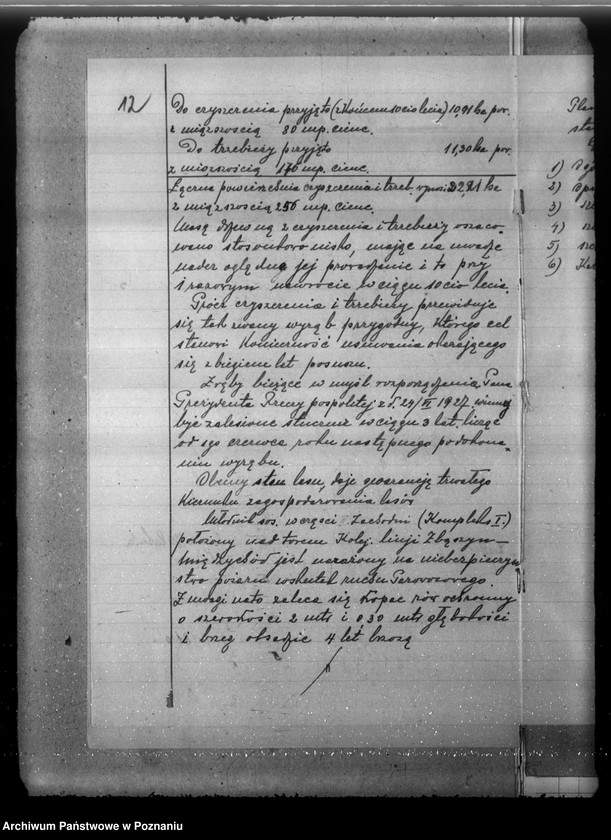 12
Do czyszczenia przyjęto (z końcem 10cio lecia) 10,91 ha pow.
z miąższością 80 mp. ciene.
Do trzebieży przyjęto 11,30 ha pow.
z miąższością 176 mp. ciene.
Łączna powierzchnia czyszczenia i trzeb. wynosi 22,21 ha
z miąższością 256 mp. ciene.
Masę drzewną z czyszczenia i trzebieży oszaco-
wano stosunkowo nisko, mając na uwadze
nader oględne jej prowadzenie i to przy
1 razowym nawrocie w ciągu 10cio lecia.
Prócz czyszczenia i trzebieży przewiduje
się tak zwany wyrąb przygodny, którego cel
stanowi konieczność usuwania okazującego
się z biegiem lat posuszu.
Zręby bieżące w myśl rozporządzenia Pana
Prezydenta Rzeczypospolitej z d. 24/VI 1927 winny
być zalesione sztucznie w ciągu 3 lat, licząc
od 1go czerwca roku następnego po dokona-
niu wyrębu.
Obecny stan lasu, daje gwarancję trwałego
kierunku zagospodarowania lasów
Młodnik sos. w części zachodni (Kompleks I.)
położony nad torem Kolej. linji Zbąszyn-
Międzychód jest narażony na niebezpieczeń
stwo pożaru wskutek ruchu parowozowego.
Z uwagi na to zaleca się kopać rów ochronny
o szerokości 2 mts i 0,30 mts głębokości
i brzeg obsadzić 4 let brzozą
1)
2)
3)
4)
5)
6)
Archiwum Państwowe w Poznaniu